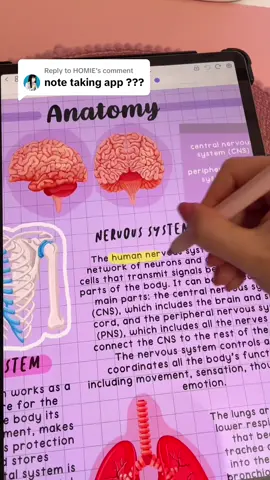 Reply to HOMIE's comment
note taking app ???
Anatomy
central nervous
system (CNS)
NERVOUS SYSTEM
The human nervous system
network of neurons and
cells that transmit signals
parts of the body. It can be
main parts: the central nervous
(CNS), which includes the brain and
cord, and the peripheral nervous
(PNS), which includes all the nerves
connect the CNS to the rest of the
The nervous system controls a
coordinates all the body's funct
including movement, sensation, thou
emotion.
works as a
re for the
e body its
ment, makes
s protection
d stores
tal system is
The lungs ar
lower respir
that be
trachea
into the
bronchio